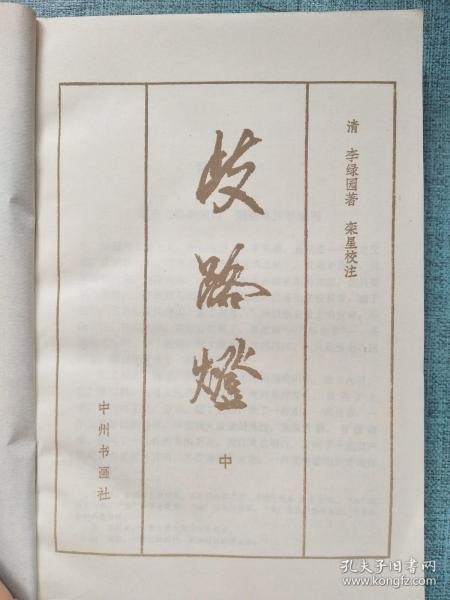 清 李绿园著 栾星校注
歧路燈
中
中州书画社
孔夫子旧书网
www.kongfz.com